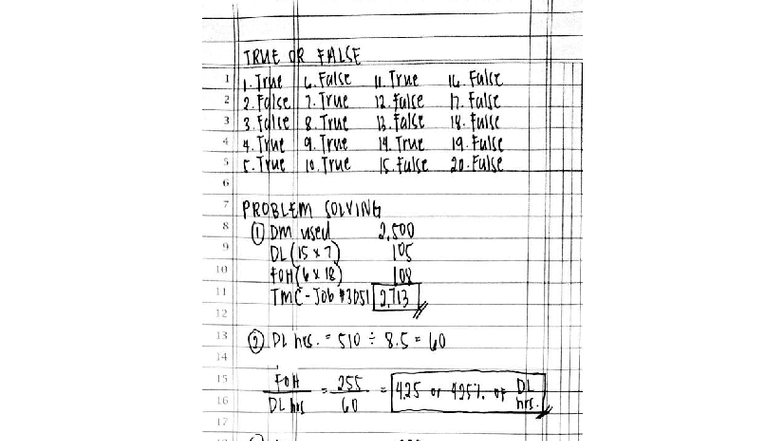 TRUE OR FALSE
1 1. True 6. False 11. True 16. False
2 2. False 7. True 12. False 17. False
3 3. False 8. True 13. False 18. False
4 4. True 9. True 14. True 19. False
5 5. True 10. True 15. False 20. False
6
7 PROBLEM SOLVING
8 ① DM used 2,500
9 DL (15 x 7) 105
10 FOH (6 x 18) 108
11 TMC - Job #3051 2,713
12
13 ② DL hrs. = 510 ÷ 8.5 = 60
14
15 FOH = 255 = 4.25 or 425% of DL hrs.
16 DL hrs 60
17